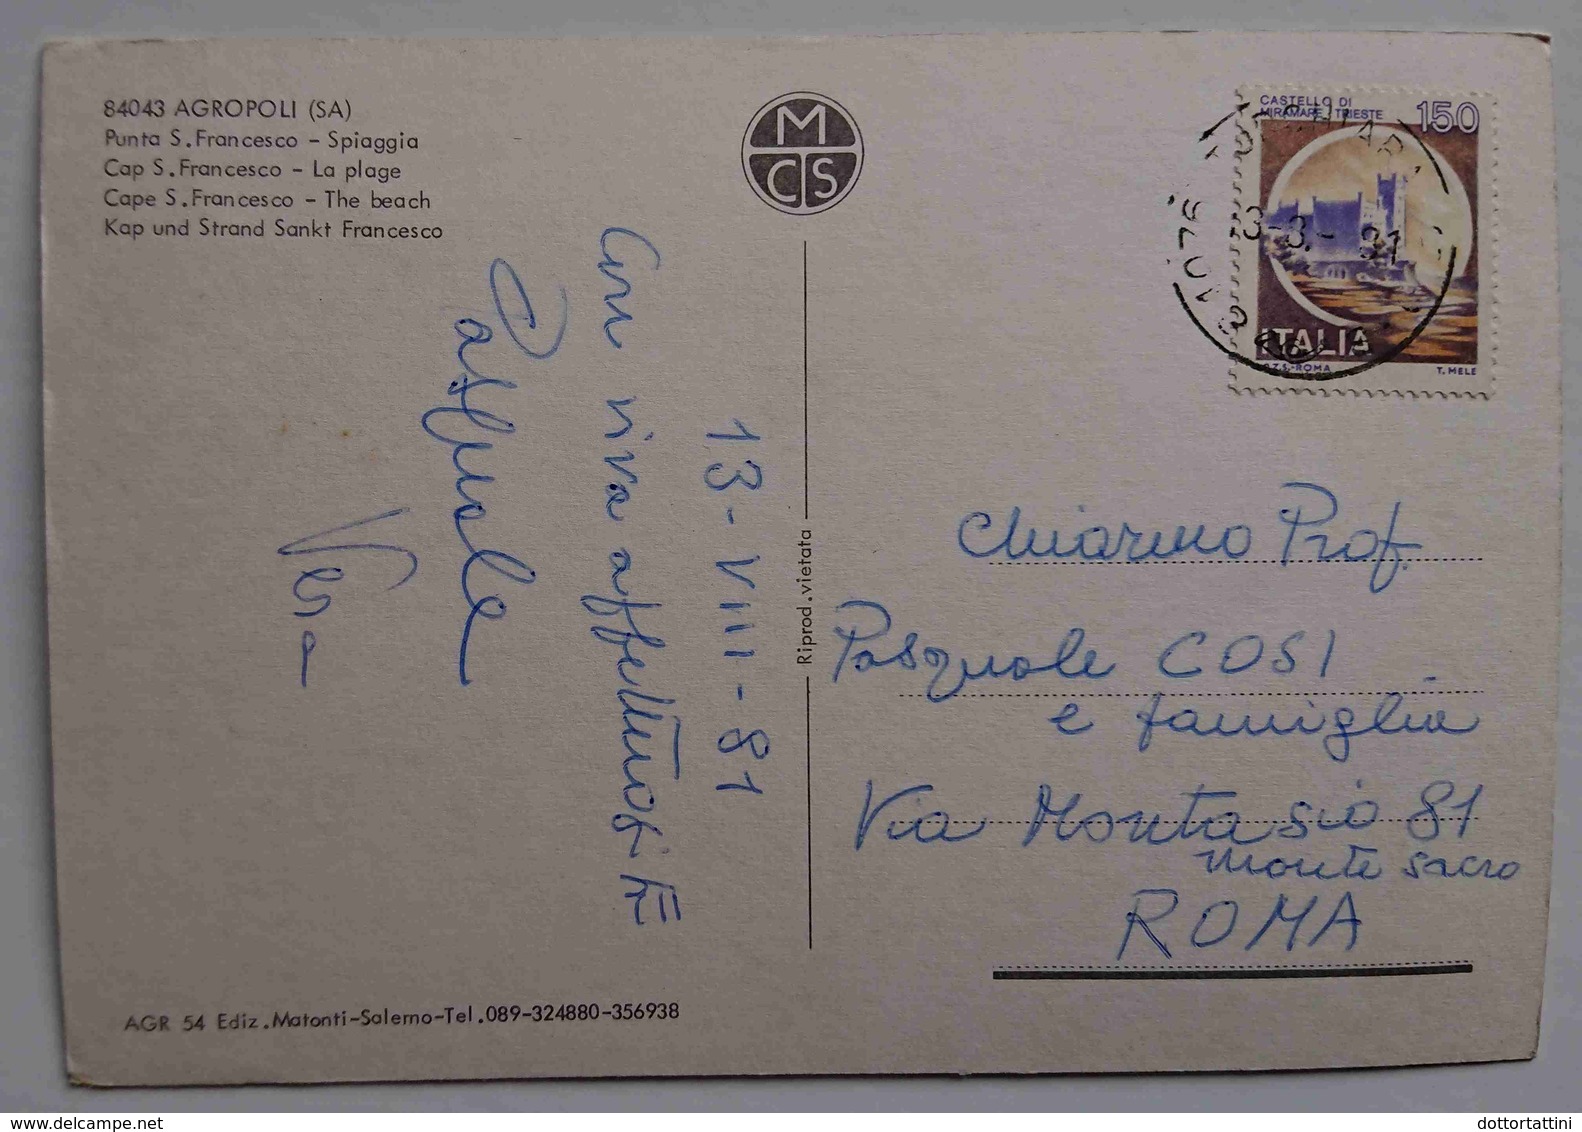 84043 AGROPOLI (SA)
Punta S. Francesco - Spiaggia
Cap S. Francesco - La plage
Cape S. Francesco - The beach
Kap und Strand Sankt Francesco
M
CS
CASTELLO DI
MIRAMARE TRIESTE
150
ITALIA
I.P.Z.S.-ROMA T. MELE
13-VIII-81
Con viva affettuosità
Pasquale
Vera
Riprod. vietata
Chiar.mo Prof.
Pasquale COSI
e famiglia
Via Montasio 81
Monte Sacro
ROMA
AGR 54 Ediz. Matonti-Salerno-Tel. 089-324880-356938
www.delcampe.net
dottortattini